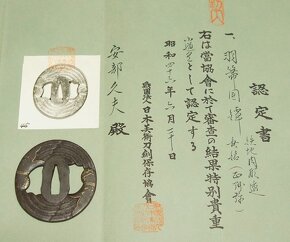 認定書
一、羽箒図鐔
鉄地肉彫透
右は當協會に於て審査の結果特別貴重
小道具として認定する
昭和四十三年六月二十日
財團法人日本美術刀剣保存協會
安部久夫殿